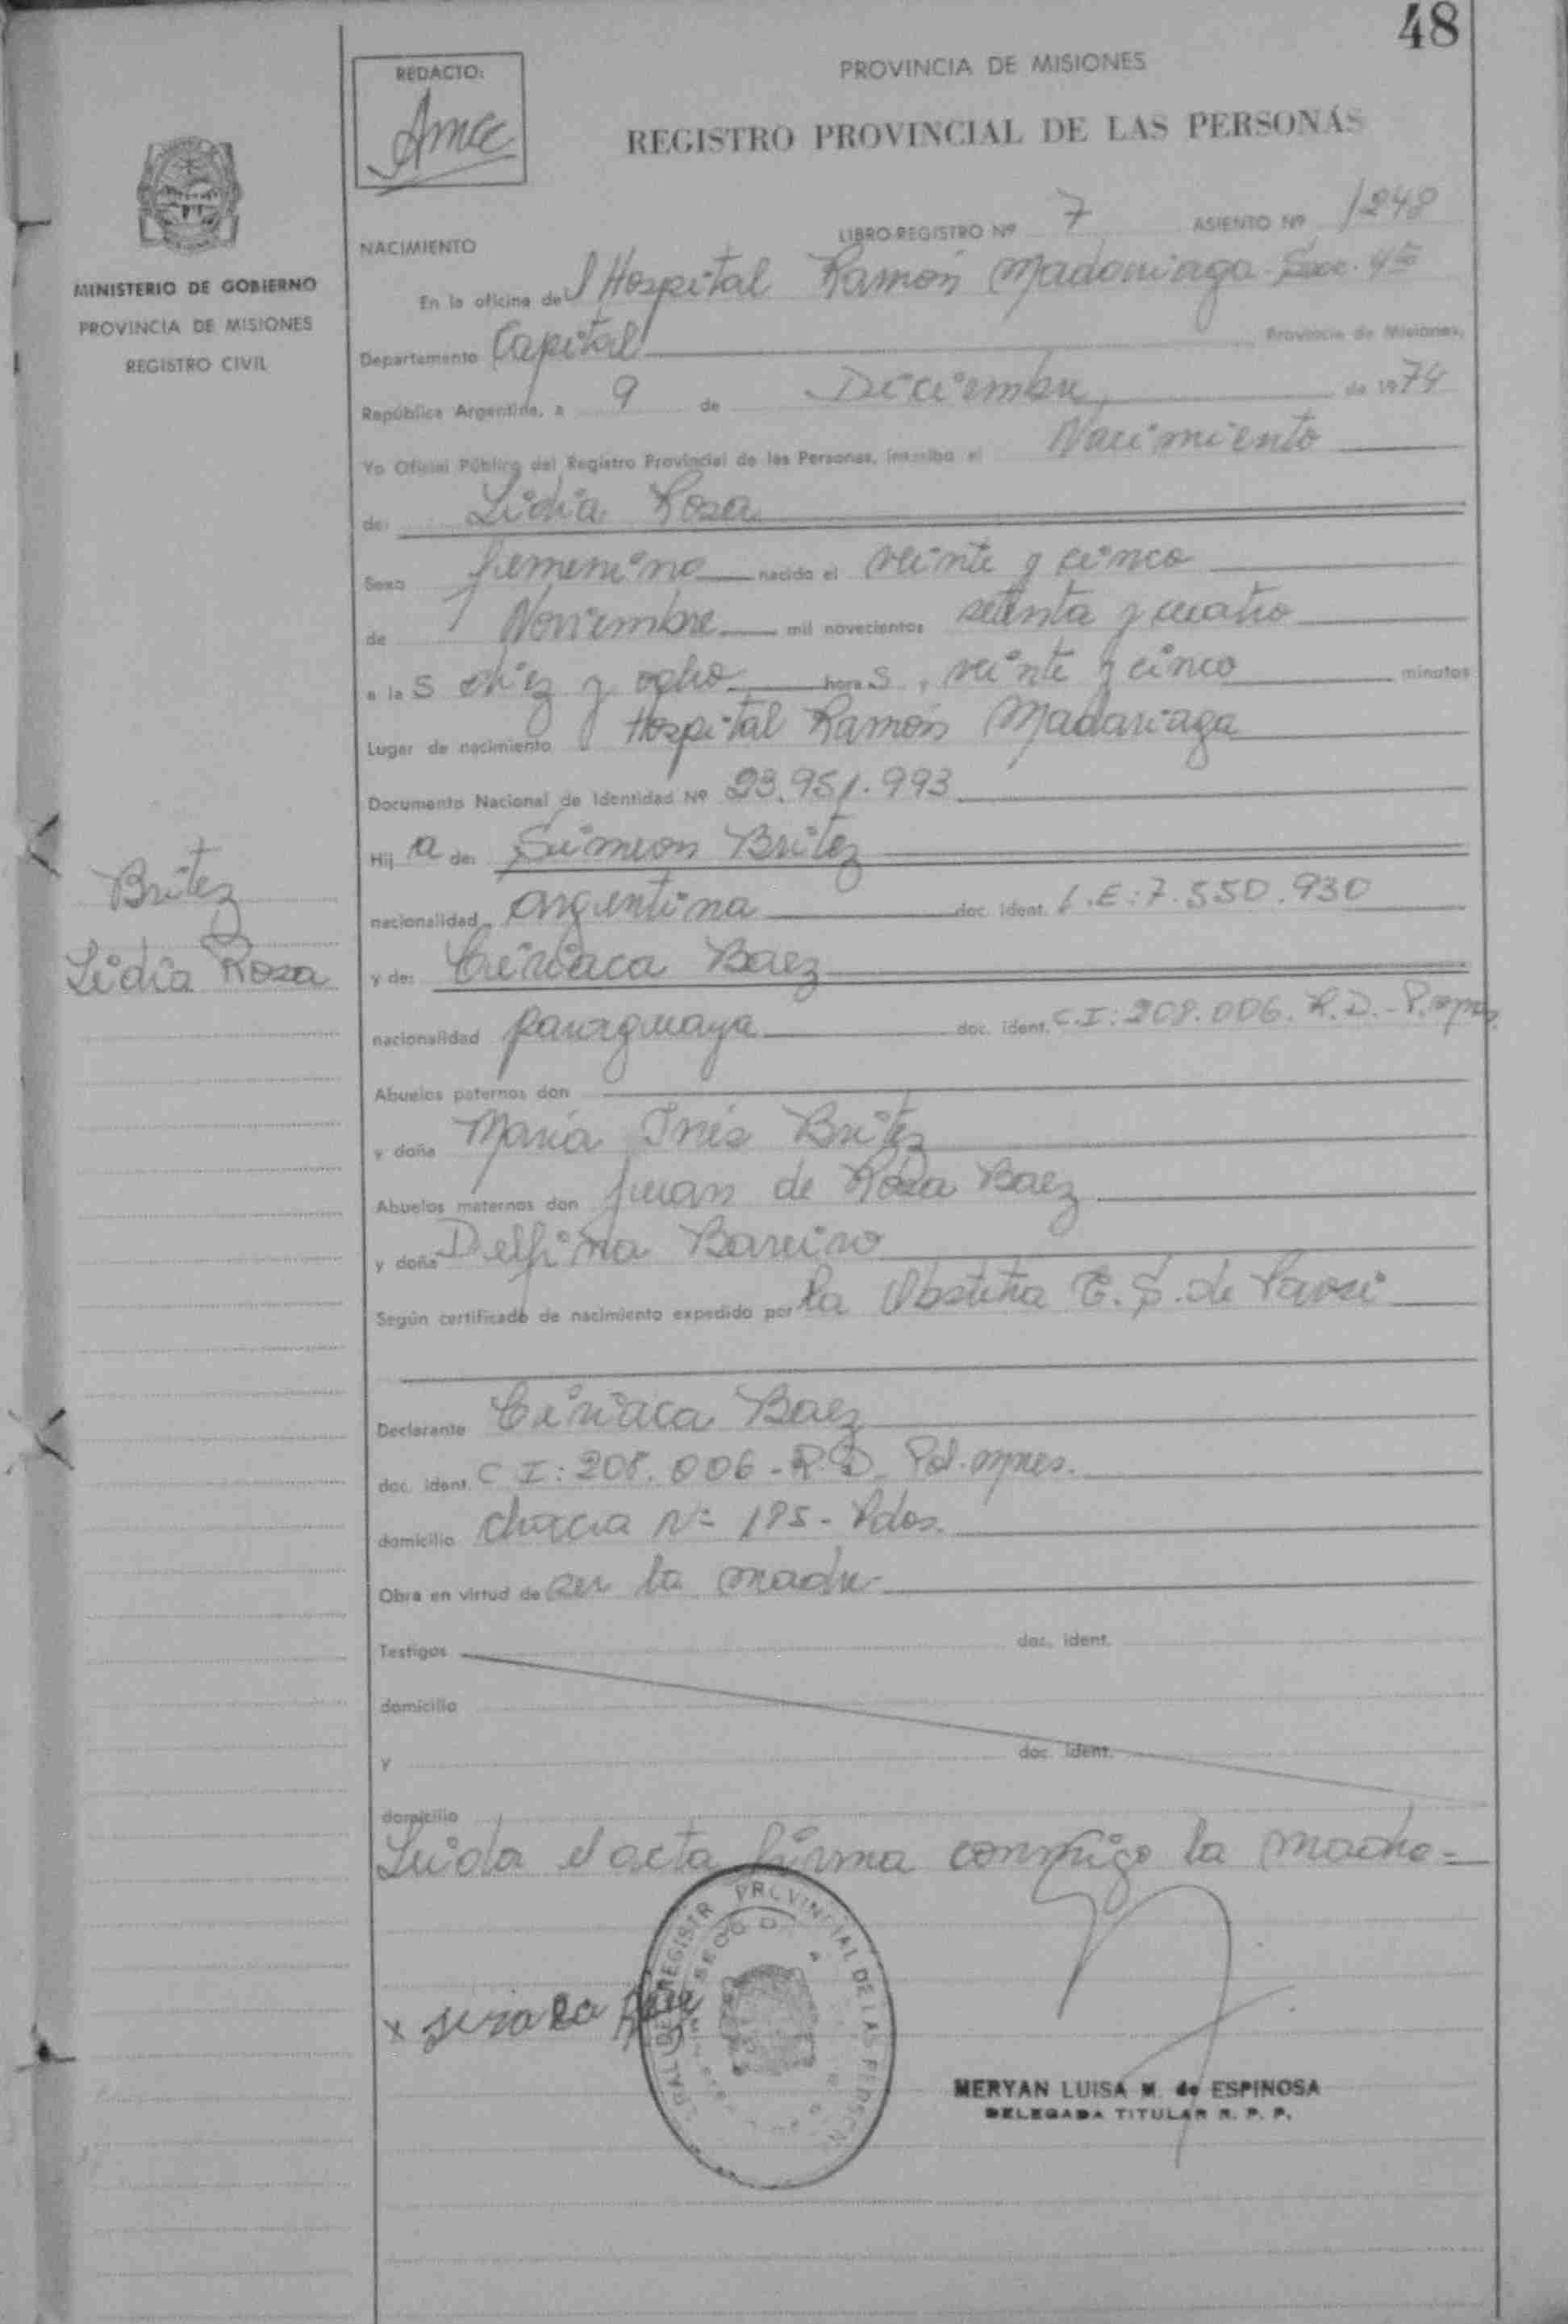 48
REDACTO:
PROVINCIA DE MISIONES
REGISTRO PROVINCIAL DE LAS PERSONAS
MINISTERIO DE GOBIERNO
PROVINCIA DE MISIONES
REGISTRO CIVIL
NACIMIENTO LIBRO REGISTRO Nº 7 ASIENTO Nº 1248
En la oficina del Hospital Ramón Madariaga Secc. 4ta
Departamento Capital Provincia de Misiones,
República Argentina, a 9 de Diciembre, de 1974
Yo Oficial Público del Registro Provincial de las Personas, inscribo el Nacimiento
de: Lidia Rosa
Sexo femenino nacido el veinte y cinco
de Noviembre mil novecientos setenta y cuatro
a la s diez y ocho hora s, veinte y cinco minutos
Lugar de nacimiento Hospital Ramón Madariaga
Documento Nacional de Identidad Nº 23.951.993
Hij a de: Simeon Britez
nacionalidad argentina doc. ident. L.E: 7.550.930
y de: Ciriaca Baez
nacionalidad paraguaya doc. ident. C.I: 208.006. R.D.-P.mnes.
Abuelos paternos don
y doña María Inés Britez
Abuelos maternos don Juan de Rosa Baez
y doña Delfina Bareiro
Según certificado de nacimiento expedido por la Obstetra E.S. de
Declarante Ciriaca Baez
doc. ident. C I: 208.006-R.D. Pol. mnes.
domicilio chacra Nº 185- Pdas.
Obra en virtud de ser la madre-
Testigos doc. ident.
domicilio
y doc. ident.
domicilio
Leida el acta firma conmigo la madre=
Britez
Lidia Rosa
REGISTR PROVINCIAL DE LAS PERSON
MERYAN LUISA M. de ESPINOSA
DELEGADA TITULAR R. P. P.